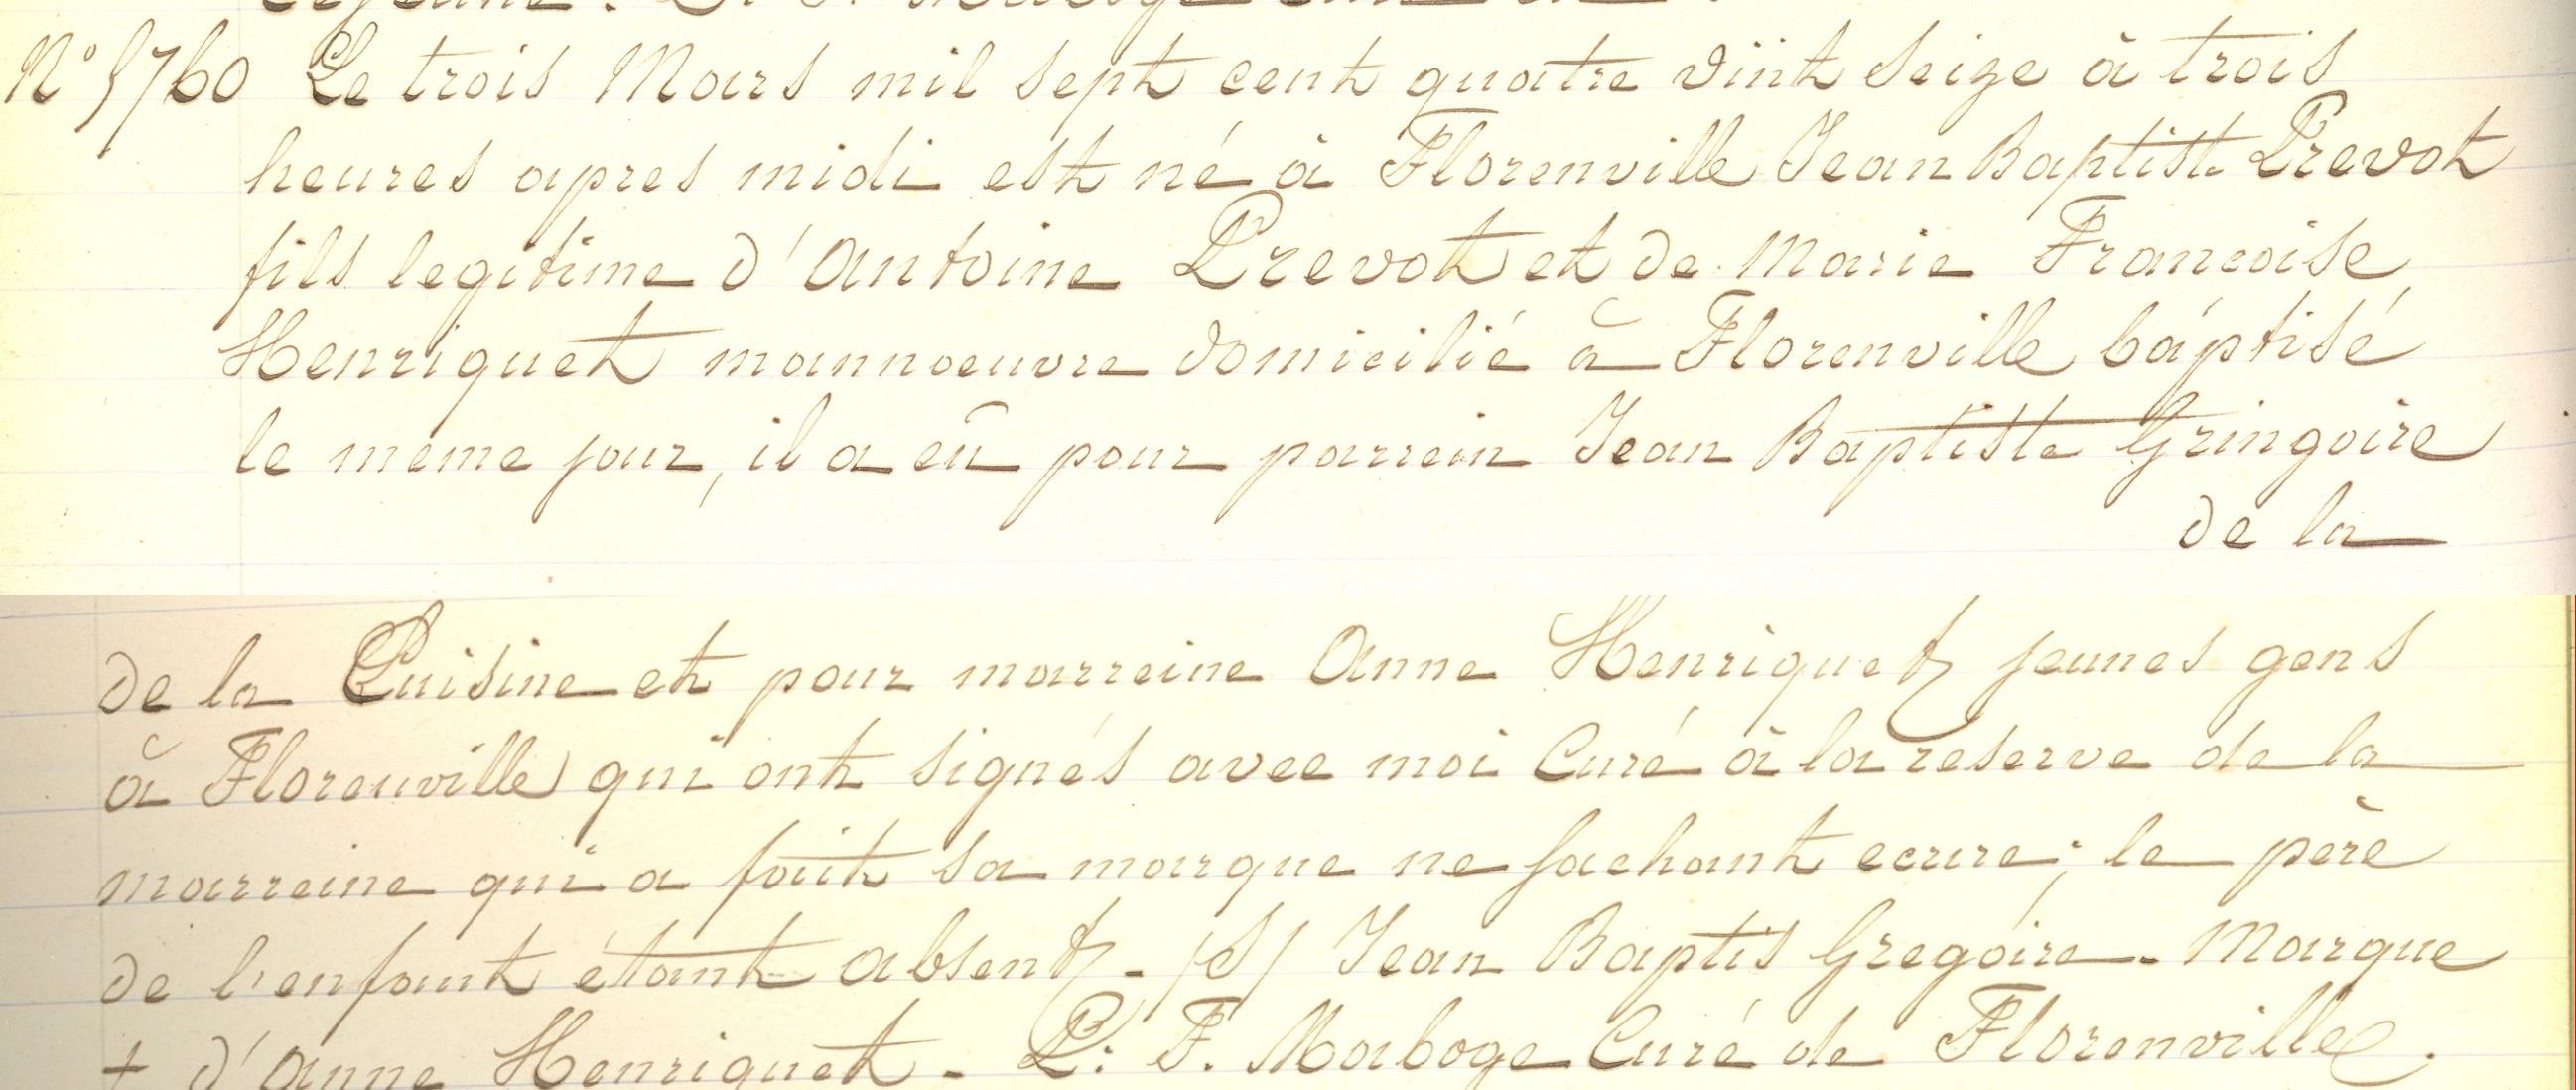 N° 5760 Le trois Mars mil sept cent quatre vint seize à trois
heures apres midi est né à Florenville Jean Baptiste Prevot
fils legitime d'Antoine Prevot et de Marie Francoise
Henriquet mannoeuvre domicilié à Florenville báptisé
le meme jour, il a eû pour parrein Jean Baptiste Gringoire
de la
de la Cuisine et pour marreine Anne Henriquet jeunes gens
à Florenville qui ont signés avec moi Curé à la reserve de la
marreine qui a fait sa marque ne sachant ecrire; le père
de l'enfant étant absent - /S/ Jean Baptis Gregoire - Marque
+ d'Anne Henriquet - P. F. Maboge Curé de Florenville.